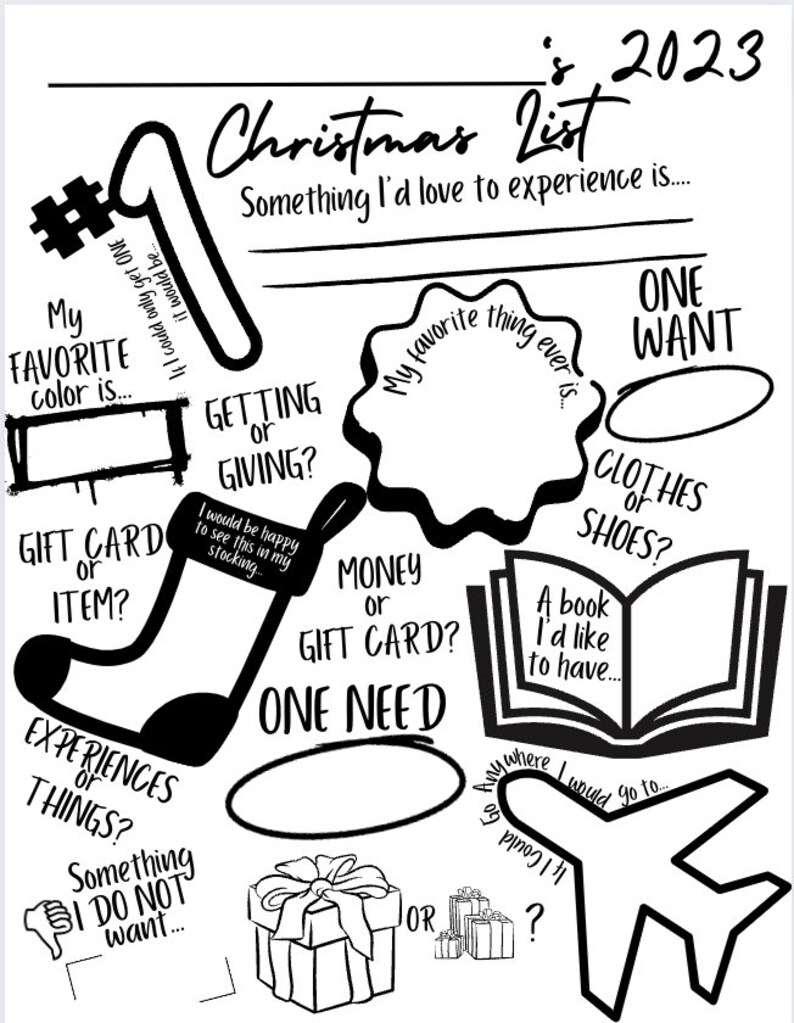 's 2023
Christmas List
#1
If I could only get ONE
it would be...
Something I'd love to experience is....
My
FAVORITE
color is...
GETTING
or
GIVING?
My favorite thing ever is...
ONE
WANT
CLOTHES
or
SHOES?
GIFT CARD
or
ITEM?
I would be happy
to see this in my
stocking...
MONEY
or
GIFT CARD?
A book
I'd like
to have...
ONE NEED
EXPERIENCES
or
THINGS?
If I Could Go Anywhere I would go to...
Something
I DO NOT
want...
OR
?